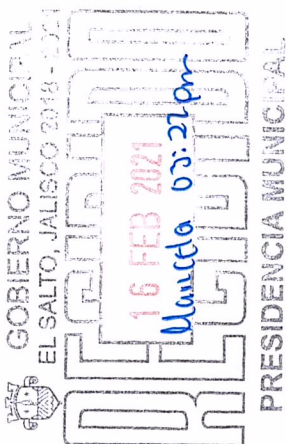 GOBIERNO MUNICIPAL
EL SALTO, JALISCO 2018-2021
RECIBIDO
16 FEB 2021
Marcela 03:22pm
PRESIDENCIA MUNICIPAL